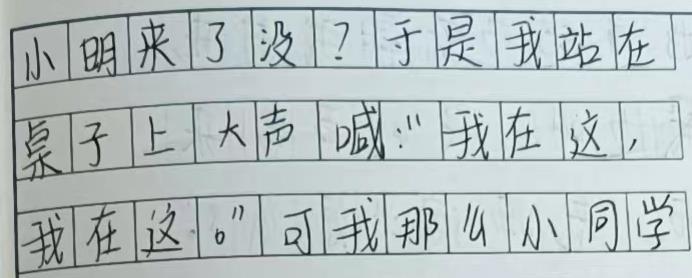 小明来了没？于是我站在
桌子上大声喊："我在这，
我在这。"可我那么小同学